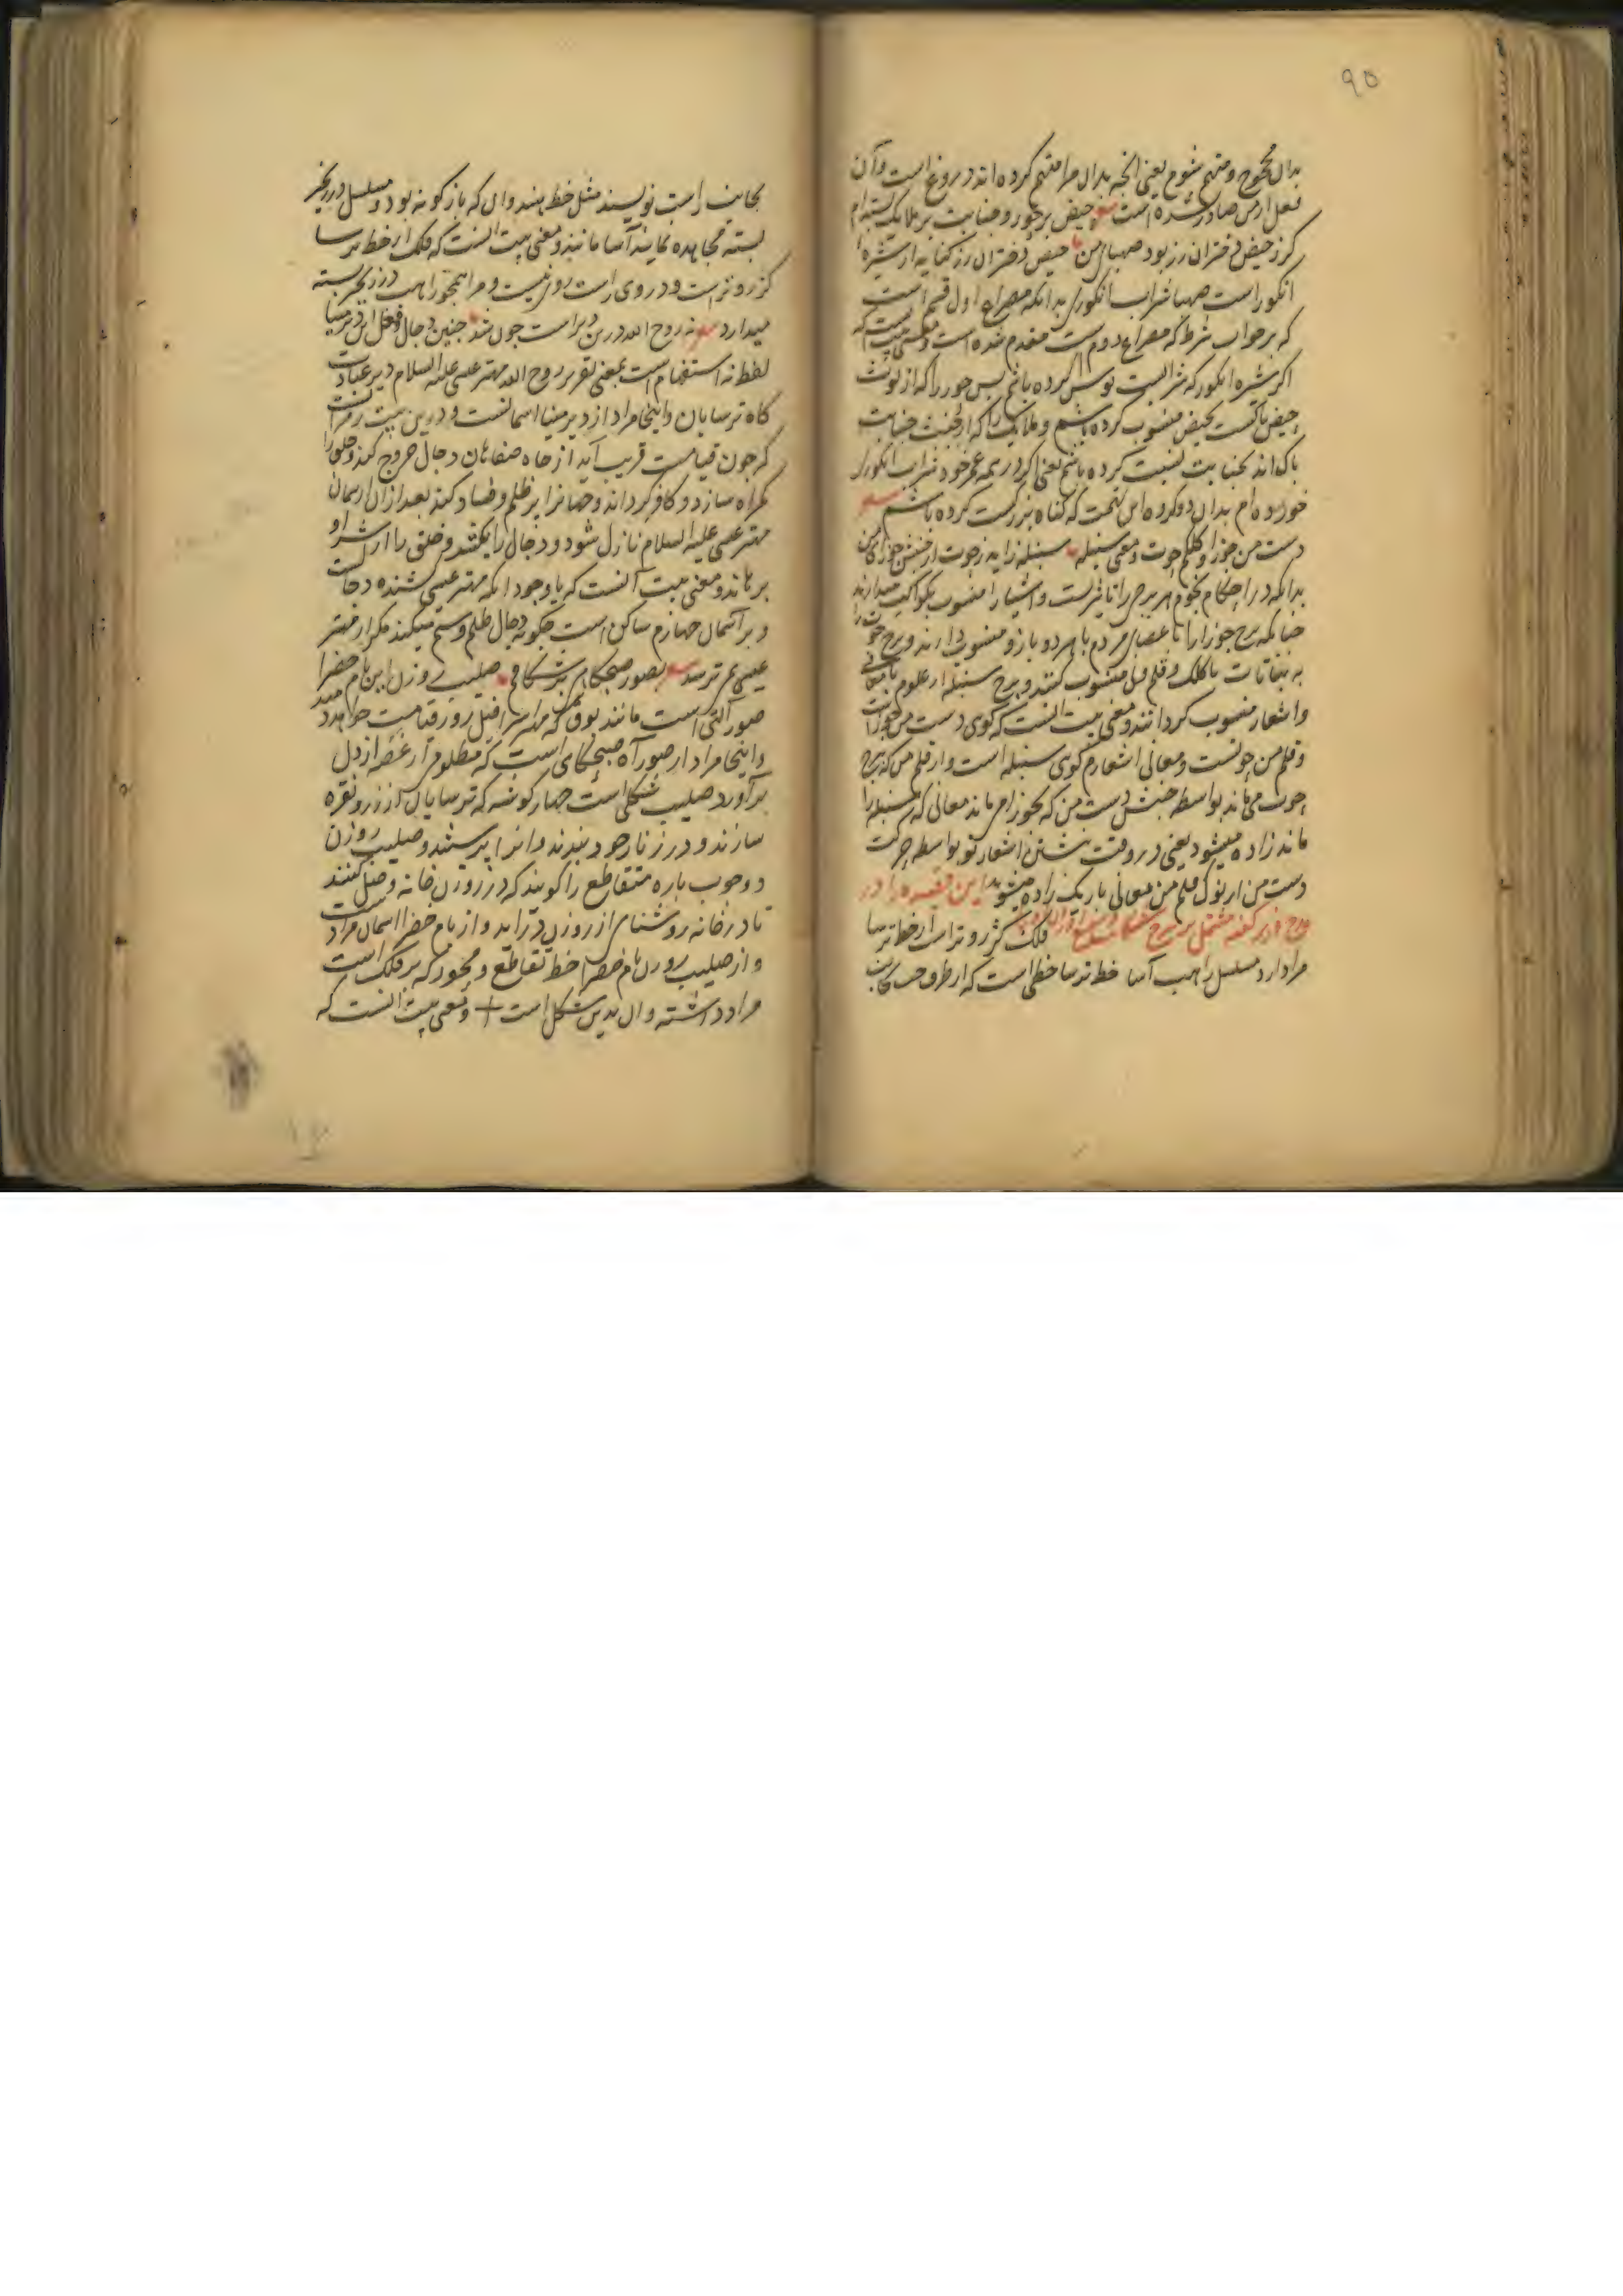 ۹۵
بدان مجروح و متهم شوم یعنی انچه بدان مرا متهم کرده اند دروغ است و آن
فعل از من صادر نشده است حیض بر حور و جنابت بر ملایک بسته ام
کز حیض دختران رز بود صهبای من حیض دختران رز کنایه از شیره
انکور است صهبا شراب انکوری بدانکه مصراع اول قسم است
که بر جواب شرط که مصراع دوم است مقدم شده است و معنی بیت
اکر شیره انکور که شرابست نوش کرده باشم پس حور را که از لوث
حیض پاکست بحیض منسوب کرده باشم و ملایک را که از جنابت
پاک اند بجنابت نسبت کرده باشم یعنی اکر در همه عمر خود شراب انکوری
خورده ام بدان دو کروه این تهمت که کناه بزرکست کرده باشم
دست من جوزا و کلکم حوت و معنی سنبله سنبله زاید ز حوت از جنبش جوزای من
بدانکه در احکام نجوم هر برج را تاثیریست و اشیا را منسوب بکواکب میدارند
چنانکه برج جوزا را با اعضای مردم با هر دو بازو منسوب دارند و برج حوت را
به نباتات با کلک و قلم منسوب کنند و برج سنبله از علوم با معانی
و اشعار منسوب کردانند و معنی بیت انست که کوی دست من جوزاست
و قلم من حوتست و معانی اشعارم کوی سنبله است و از قلم من که برج
حوت می ماند بواسطه جنبش دست من که بجوزا می ماند معانی که سنبله را
ماند زاده میشود یعنی در وقت نبشتن اشعار تو بواسطه حرکت
دست من از نوک قلم من معانی باریک زاده میشود این قصیده را در
فلک کژ روتر است از خط ترسا
مرا دارد مسلسل راهب آسا خط ترسا خطی است که از طرف چپ بجانب
بجانب راست نویسند مثل خط هندوان که بازکونه بود و مسلسل در زنجیر
بسته مجاهده نماینده آسا مانند و معنی بیت انست که فلک از خط ترسا
کژ روتر است و در وی راست روی نیست و مرا همچو راهب در زنجیر بسته
میدارد نه روح الله درین دیر است چون شد چنین دجال فعل این دیر مینا
لفظ نه استفهام است بمعنی تقریر روح الله مهتر عیسی علیه السلام دیر عبادت
کاه ترسایان و اینجا مراد از دیر مینا اسمانست و درین بیت رمز است
که چون قیامت قریب آید از چاه صفاهان دجال خروج کند و خلق را
کمراه سازد و کافر کرداند و جهانرا پر ظلم و فساد کند بعد از آن از آسمان
مهتر عیسی علیه السلام نازل شود و دجال را بکشد و خلق را از شر او
برهاند و معنی بیت آنست که با وجود انکه مهتر عیسی کشنده دجالست
و بر آسمان چهارم ساکن است چکونه دجال ظلم و ستم میکند مکر از مهتر
عیسی نمی ترسد بصور صبحکاهی بر شکافم صلیب روزن این بام خضرا
صور آلتی است مانند بوق که مهتر اسرافیل روز قیامت خواهد دمید
و اینجا مراد از صور آه صبحکاهی است که مظلوم از غصه از دل
برآورد صلیب شکلی است چهار کوشه که ترسایان از زر و نقره
سازند و در زنار خود بندند و انرا پرستند و صلیب روزن
دو چوب پاره متقاطع را کویند که در روزن خانه وصل کنند
تا در خانه روشنای از روزن در آید و از بام خضرا اسمان مراد است
و از صلیب روزن بام خضرا خط تقاطع و محور که بر فلک است
مراد داشته و ان بدین شکل است + و معنی بیت انست که